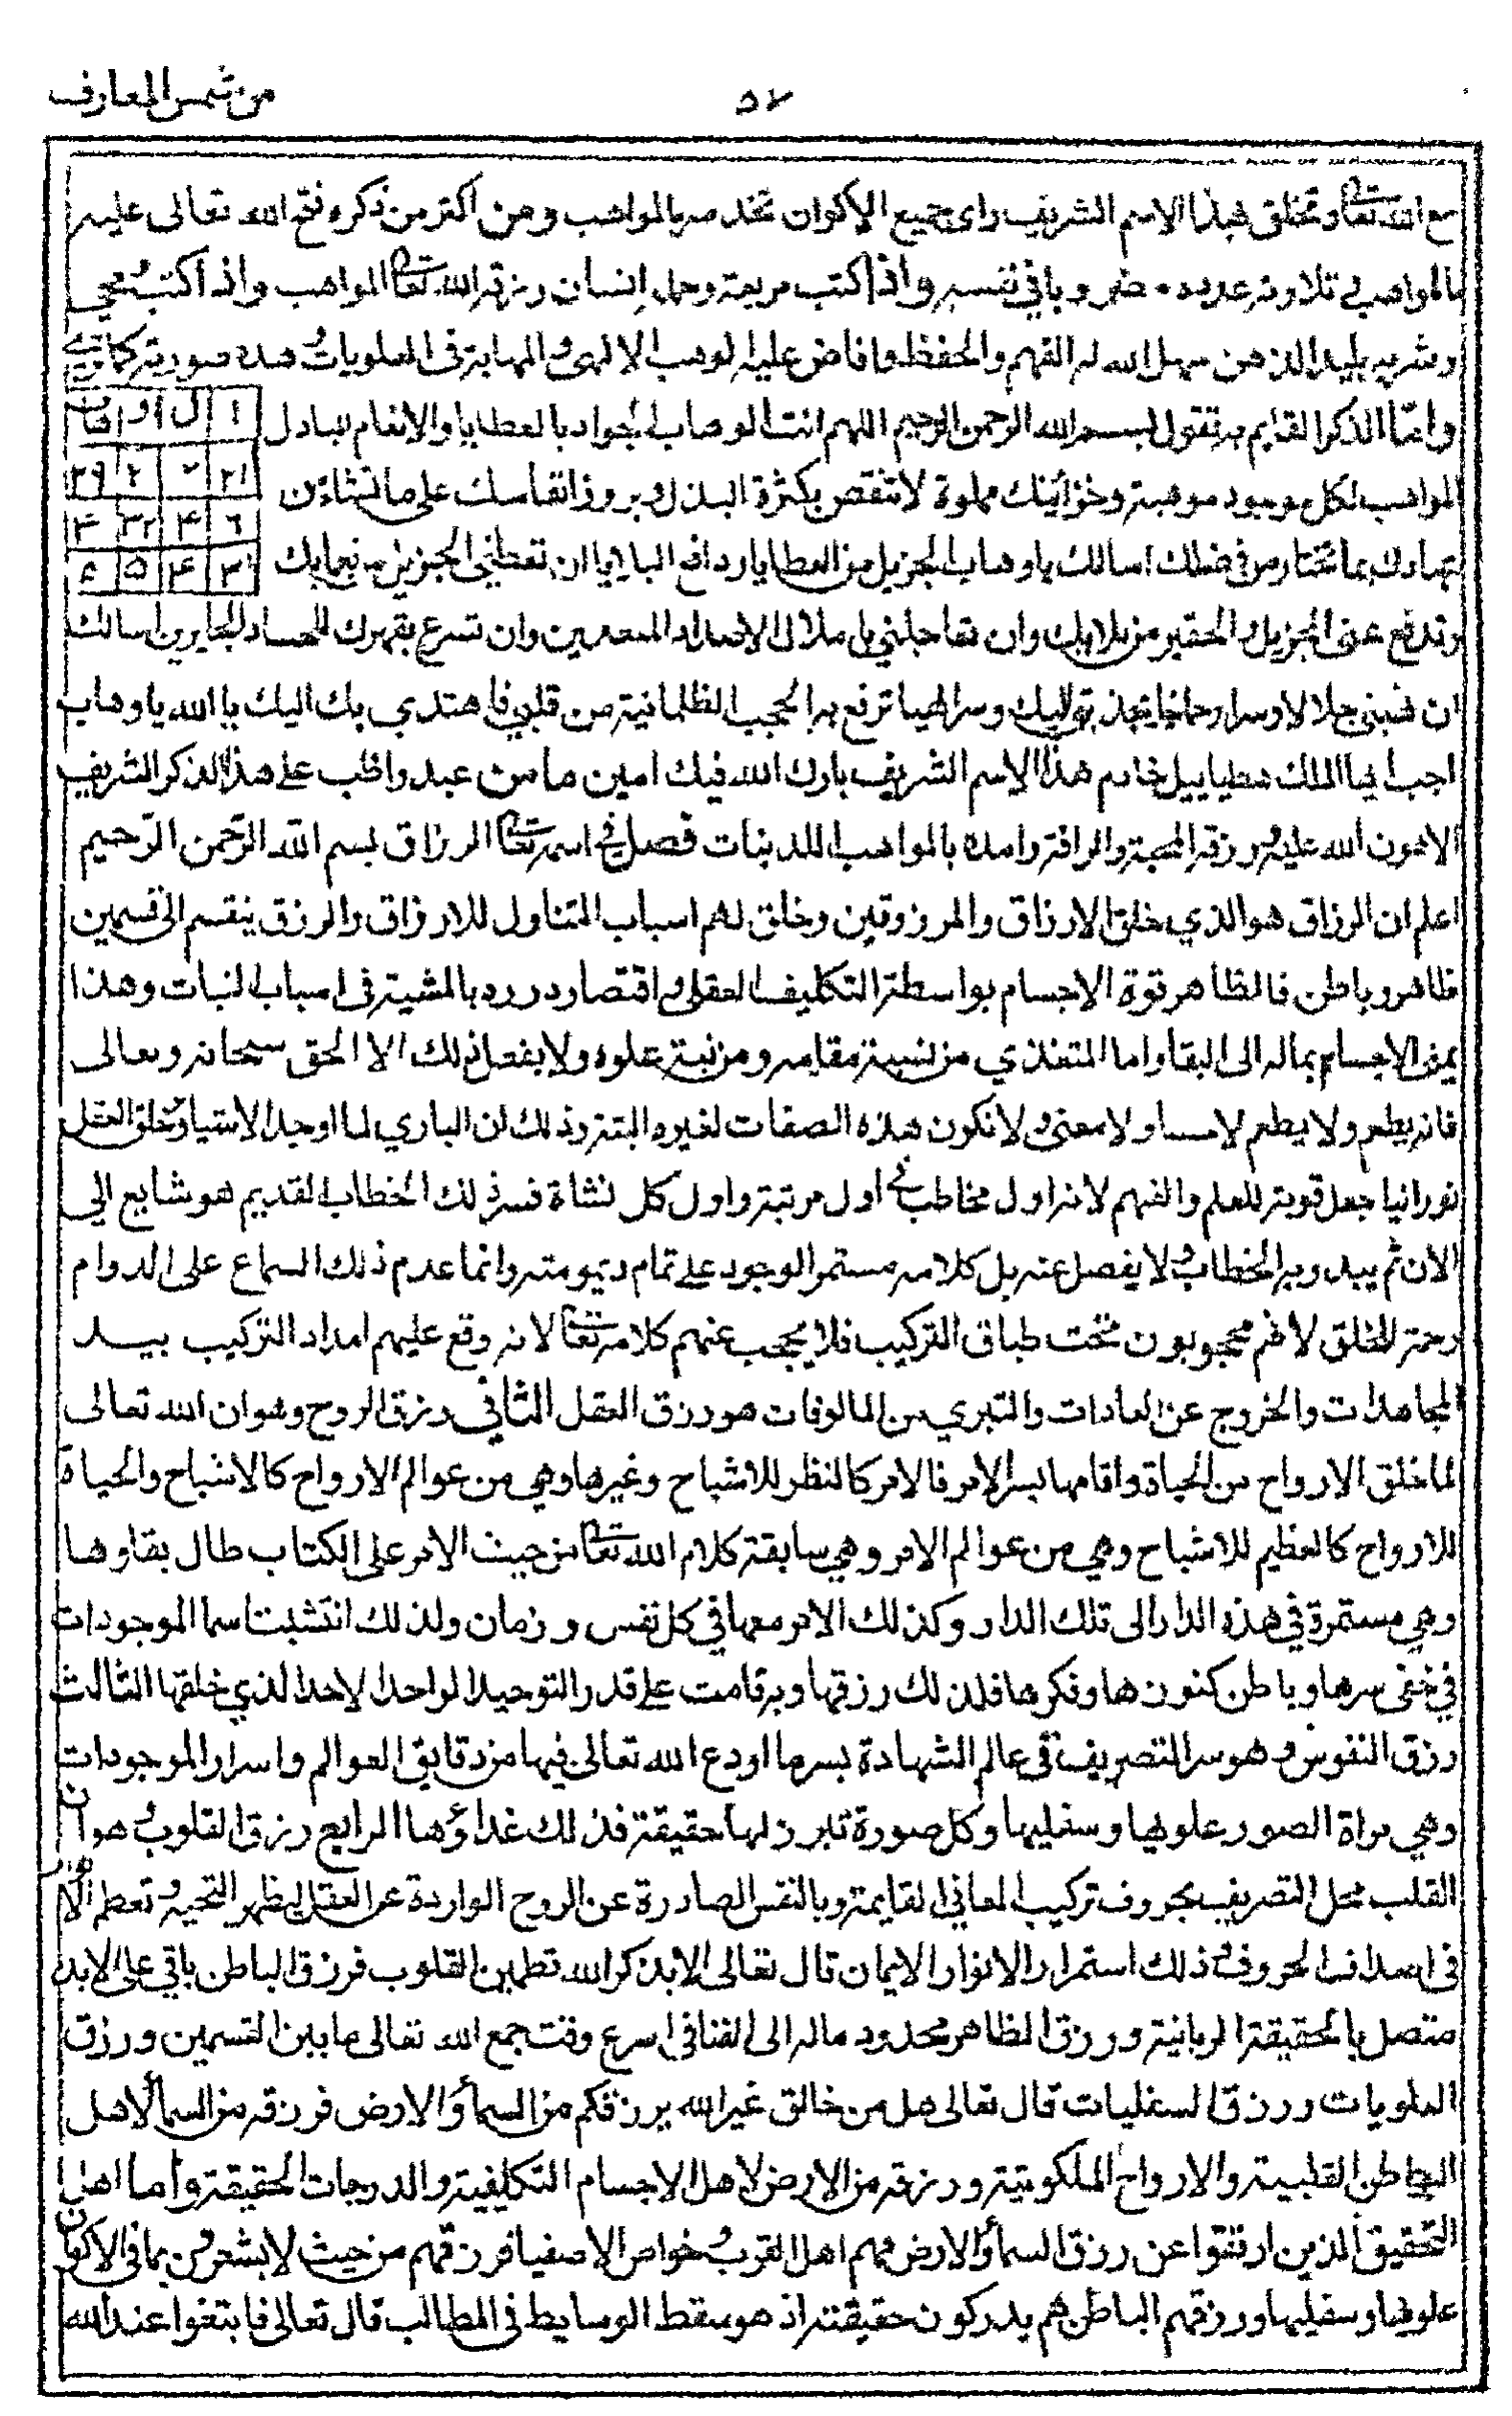 من شمس المعارف
٥٧
مع الله تعالى وتخلق بهذا الاسم الشريف راى جميع الاكوان تخدمه بالمواهب ومن اكثر من ذكره فتح الله تعالى عليه
بالمواهب تلاوته عدده مضروبا في نفسه واذا كتب مربعه وحمله انسان رزقه الله تعالى المواهب واذا كتب ومحي
وشربه بليد الذهن سهل الله له الفهم والحفظ وافاض عليه الوهب الالهي والمهابة في العلويات وهذه صورته كما ترى
واما الذكر القايم به تقول بسم الله الرحمن الرحيم اللهم انت الوهاب الجواد بالعطايا والانعام تبادل
ا ل و هاب
المواهب لكل موجود موهبة وخزائنك مملوة لا تنقص بكثرة البذل وبروز انفاسك على ما تشاء من
٢١ ٢ ٢٩
٦ ٤ ٣٢ ٣
بما تختار من فضلك اسالك يا وهاب الجزيل من العطايا ودافع البلايا ان تعطيني الجزيل من نعمايك
٣ ٤ ٥
وتدفع عني الجزيل الحقير من بلايك وان تعاجلني الاعداء المتمردين وان تسرع بقهرك للحساد الجايرين اسالك
ان تهبني جلالا وسرا تجذبني به اليك وسرا الهيا ترفع به الحجب الظلمانية من قلبي فاهتدي بك اليك يا الله يا وهاب
اجب ايها الملك هطياييل خادم هذا الاسم الشريف بارك الله فيك امين ما من عبد واظب على هذا الذكر الشريف
الا هون الله عليه ورزقه المحبة والرافة وامده بالمواهب اللدنيات فصل في اسمه تعالى الرزاق بسم الله الرحمن الرحيم
اعلم ان الرزاق هو الذي خلق الارزاق والمرزوقين وخلق لهم اسباب التناول للارزاق والرزق ينقسم الى قسمين
ظاهر وباطن فالظاهر قوة الاجسام بواسطة التكليف العقلي و بالمشية في اسباب النبات وهذا
الاجسام بماله الى البقا واما المتغذي من نسبة مقامه ومن نسبة علوه ولا يفعل ذلك الا الحق سبحانه وتعالى
فانه يطعم ولا يطعم لا حسا ولا معنى ولا تكون هذه الصفات لغيره البتة وذلك لان الباري لما اوجد الاشياء وخلق العقل
نورانيا جعل قوته للعلم والفهم لانه اول مخاطب في اول مرتبة واول كل نشاة فسر ذلك الخطاب القديم هو شايع الي
الان ثم يبدو به الخطاب ولا يفصل عنه بل كلامه مستمر الوجود على تمام ديمومته وانما عدم ذلك السماع على الدوام
رحمة للخلق لانهم محجوبون تحت طباق التركيب فلا يحجب عنهم كلامه تعالى لانه وقع عليهم امداد التركيب بيد
المجاهدات والخروج عن العادات والتبري من المالوفات هو رزق العقل الثاني رزق الروح وهو ان الله تعالى
لما خلق الارواح من الحياة واقامها بسر الامر فالامر كالنظر للاشباح وغيرها وهي من عوالم الارواح كالاشباح والحياة
للارواح كالعظيم للاشباح وهي من عوالم الامر وهي سابقة كلام الله تعالى من حيث الامر على الكتاب طال بقاوها
وهي مستمرة في هذه الدار الى تلك الدار وكذلك الامر معها في كل نفس وزمان ولذلك انتشبت اسما الموجودات
في خفي سرها وباطن كنونها وفكرها فلذلك رزقها وبه قامت على قدر التوحيد الواحد الاحد الذي خلقها الثالث
رزق النفوس وهو سر التصريف في عالم الشهادة بسر ما اودع الله تعالى فيها من دقايق العوالم واسرار الموجودات
وهي مراة الصور علويها وسفليها وكل صورة تبرز لها حقيقة فذلك غذاؤها الرابع رزق القلوب وهو ان
القلب محل التصريف بحروف تركيب المعاني القايمة وبالنفس الصادرة عن الروح الواردة عن العقل ليظهر التحيه وتعظم
في اصداف الحروف وذلك استمرار الانوار الايمان قال تعالى الا بذكر الله تطمئن القلوب فرزق الباطن باقي على الابد
متصل بالحقيقة الربانية ورزق الظاهر محدود ماله الى الفنا في اسرع وقت جمع الله تعالى ما بين القسمين ورزق
العلويات ورزق السفليات قال تعالى هل من خالق غير الله يرزقكم من السماء والارض فرزقه من السماء لاهل
البواطن القلبية والارواح الملكوتية ورزقه من الارض لاهل الاجسام التكليفية والدرجات الحقيقة واما اهل
التحقيق الذين ارتقوا عن رزق السماء والارض فهم اهل القرب وخواص الاصفيا فرزقهم من حيث لا يشعرون بما في الاكوان
علويها وسفليها ورزقهم الباطن هم يدركون حقيقته اذ هو سقط الوسايط في المطالب قال تعالى فابتغوا عند الله